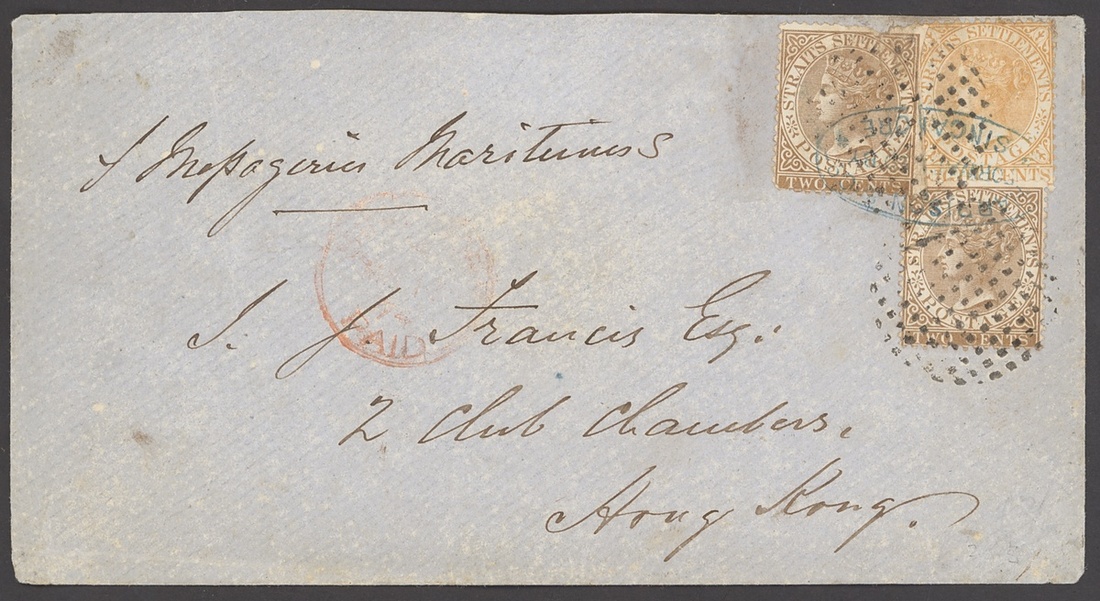 STRAITS SETTLEMENTS
POSTAGE
TWO CENTS
STRAITS SETTLEMENTS
POSTAGE
CENTS
SINGAPORE
STRAITS SETTLEMENTS
POSTAGE
TWO CENTS
Messageries Maritimes
PAID
J. J. Francis Esq:
2 Club Chambers,
Hong Kong.